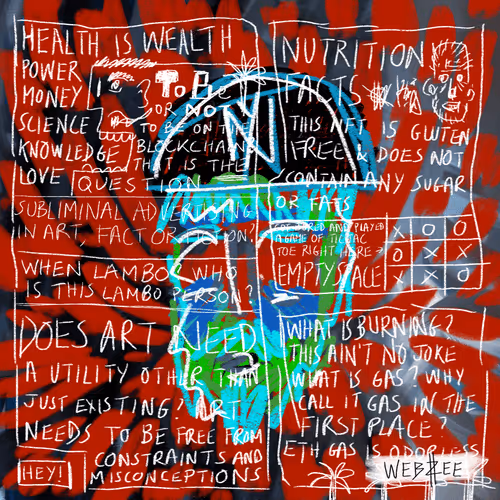 HEALTH IS WEALTH
POWER
MONEY
SCIENCE?
KNOWLEDGE
LOVE
To BE
OR NO
TO BE ON THE
BLOCKCHAIN
THAT IS THE
QUESTION
NUTRITION
FACTS
THIS NFT IS GLUTEN
FREE & DOES NOT
CONTAIN ANY SUGAR
OR FATS
SUBLIMINAL ADVERTISING
IN ART, FACT OR FICTION?
GOT BORED AND PLAYED
A GAME OF TIC TAC
TOE RIGHT HERE →
EMPTY SPACE
X O O
O X X
X X O
WHEN LAMBO? WHO
IS THIS LAMBO PERSON?
DOES ART NEED
A UTILITY OTHER THAN
JUST EXISTING? ART
NEEDS TO BE FREE FROM
CONSTRAINTS AND
MISCONCEPTIONS
HEY!
WHAT IS BURNING?
THIS AIN'T NO JOKE
WHAT IS GAS? WHY
CALL IT GAS IN THE
FIRST PLACE?
ETH GAS IS ODORLESS
WEBZEE